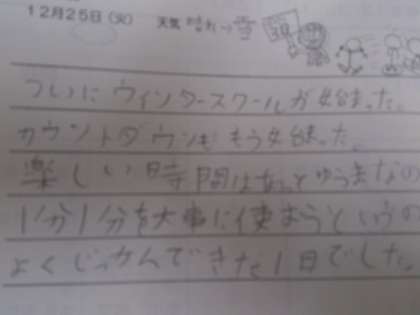 12月25日(火) 天気 晴れ→雪
ついにウィンタースクールが始まった。
カウントダウンももう始まった。
楽しい時間はあっとゆうまなの
1分1分を大事に使おうというの
よくじっかんできた1日でした。